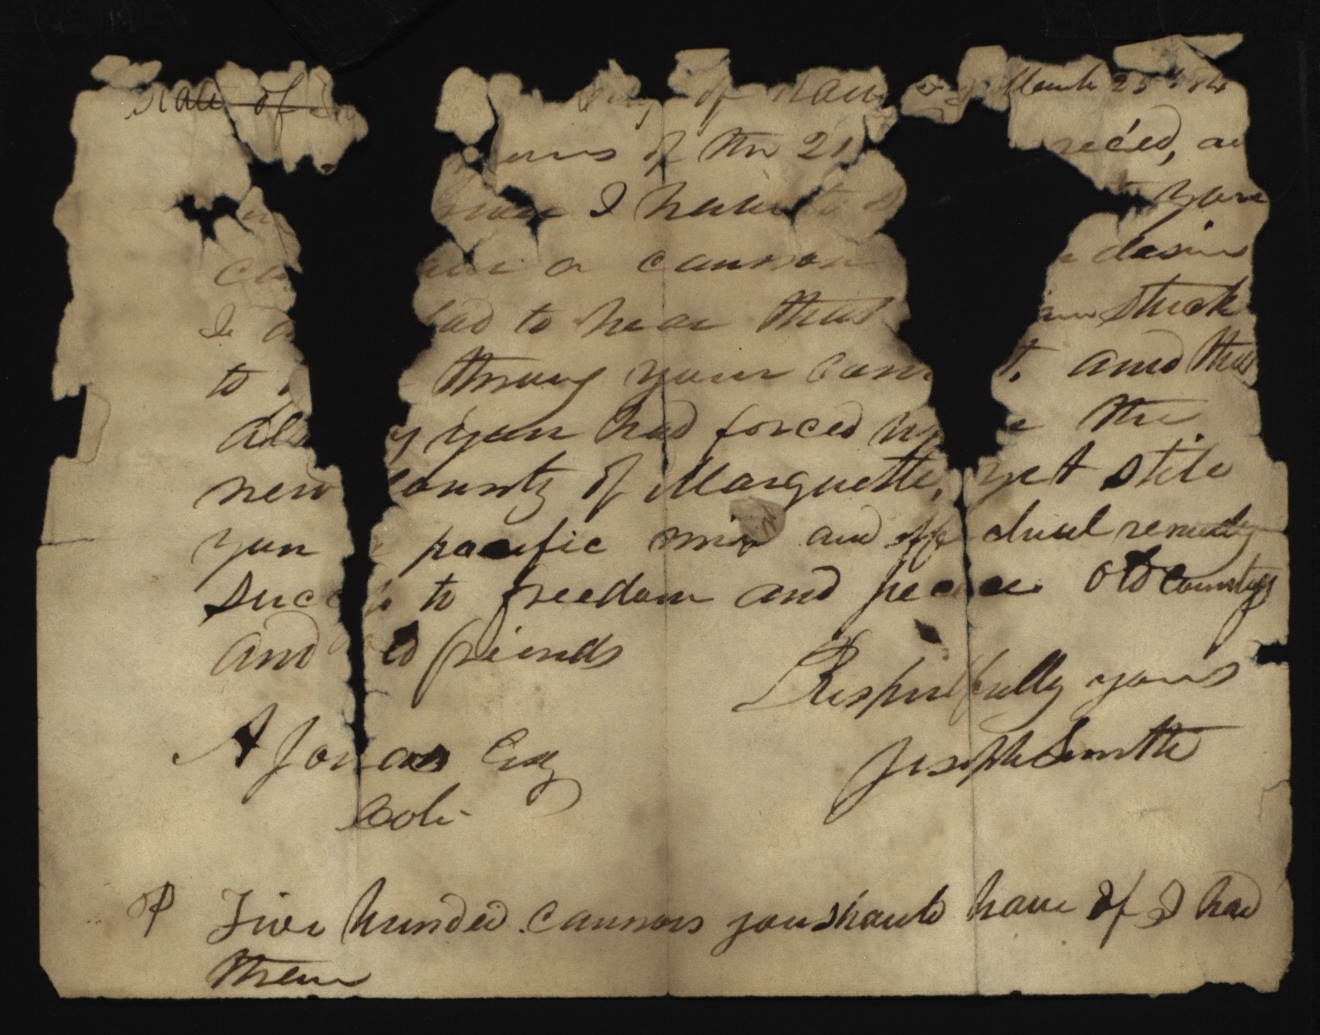 State of
City of Nau March 25th 184
yours of the 21 rec'ed, an
I have to s your
can a cannon desire
I a lad to hear that stuck
to throug your Cam t. and that
y you had forced the
new County of Marquette, yet stile
you pacific mind and effe ctual remedy
succe to freedom and peace. Old Countys
and old friends
Respectfully yours
A Jonas Esq Joseph Smith
Colo.
P Five hunded cannons you should have If I had
them